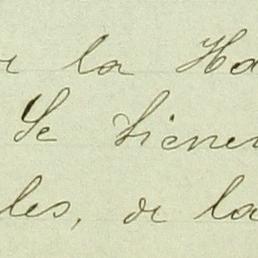 de la Ha
Se tienen
les, de la